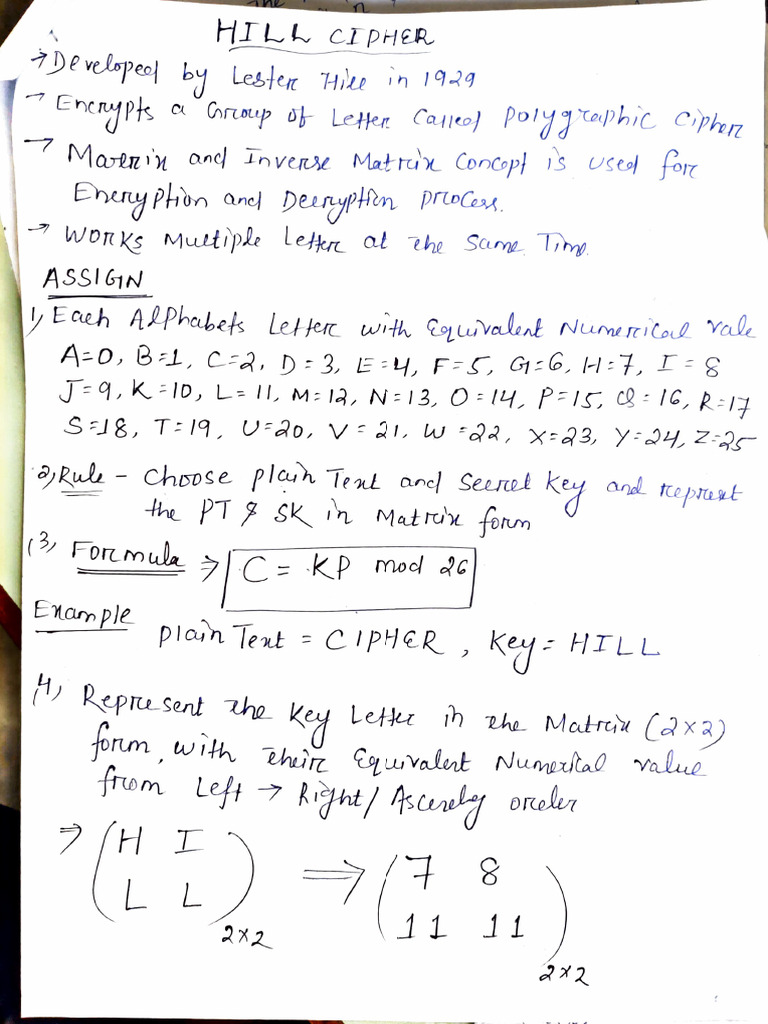 HILL CIPHER
→ Developed by Lester Hill in 1929
→ Encrypts a Group of Letter Called Polygraphic Cipher
→ Matrix and Inverse Matrix Concept is used for
Encryption and Decryption process.
→ Works Multiple Letter at the same Time.
ASSIGN
1, Each Alphabets Letter with Equivalent Numerical vale
A=0, B=1, C=2, D=3, E=4, F=5, G=6, H=7, I=8
J=9, K=10, L=11, M=12, N=13, O=14, P=15, Q=16, R=17
S=18, T=19, U=20, V=21, W=22, X=23, Y=24, Z=25
2, Rule - Choose plain Text and Secret Key and represt
the PT & SK in Matrix form
(3, Formula ⇒ C = KP mod 26
Example
Plain Text = CIPHER, Key = HILL
(4, Represent the Key Letter in the Matrix (2×2)
form, with their Equivalent Numerical value
from Left → Right/ order
⇒ (H I ⇒ (7 8
L L)2×2 11 11)2×2